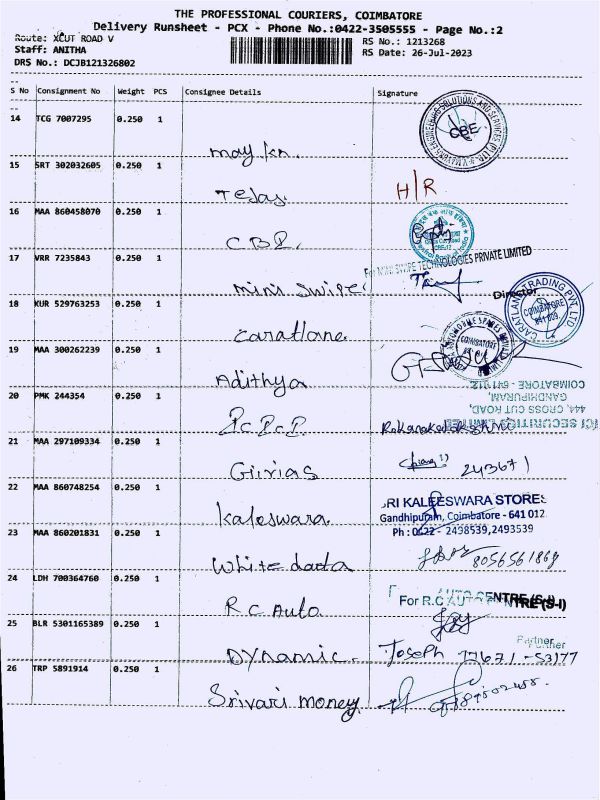 THE PROFESSIONAL COURIERS, COIMBATORE
Delivery Runsheet - PCX - Phone No.:0422-3505555 - Page No.:2
Route: XCUT ROAD V
RS No.: 1213268
Staff: ANITHA
RS Date: 26-Jul-2023
DRS No.: DCJB121326802
S No Consignment No Weight PCS Consignee Details Signature
14 TCG 7007295 0.250 1
CBE
15 SRT 302032605 0.250 1
Tejas H/R
16 MAA 860458070 0.250 1
17 VRR 7235843 0.250 1
For MINI SWIPE TECHNOLOGIES PRIVATE LIMITED
Mini Swipe
Director
18 KUR 529763253 0.250 1
CARATLANE TRADING PVT. LTD
COIMBATORE
641 009
Caratlane
19 MAA 300262239 0.250 1
COIMBATORE
Adithya
20 PMK 244354 0.250 1
444, CROSS CUT ROAD,
GANDHIPURAM,
COIMBATORE - 641 012.
21 MAA 297109334 0.250 1
Girias 243671
22 MAA 860748254 0.250 1
SRI KALEESWARA STORES
Gandhipuram, Coimbatore - 641 012
Kaleswara
Ph : 0422 - 2498539,2493539
23 MAA 860201831 0.250 1
White data 8056561869
24 LDH 700364760 0.250 1
For R.C AUTO CENTRE (S-I)
RC Auto
25 BLR 5301165389 0.250 1
Partner
Dynamic. Joseph 77671-53177
26 TRP 5891914 0.250 1
Srivari money